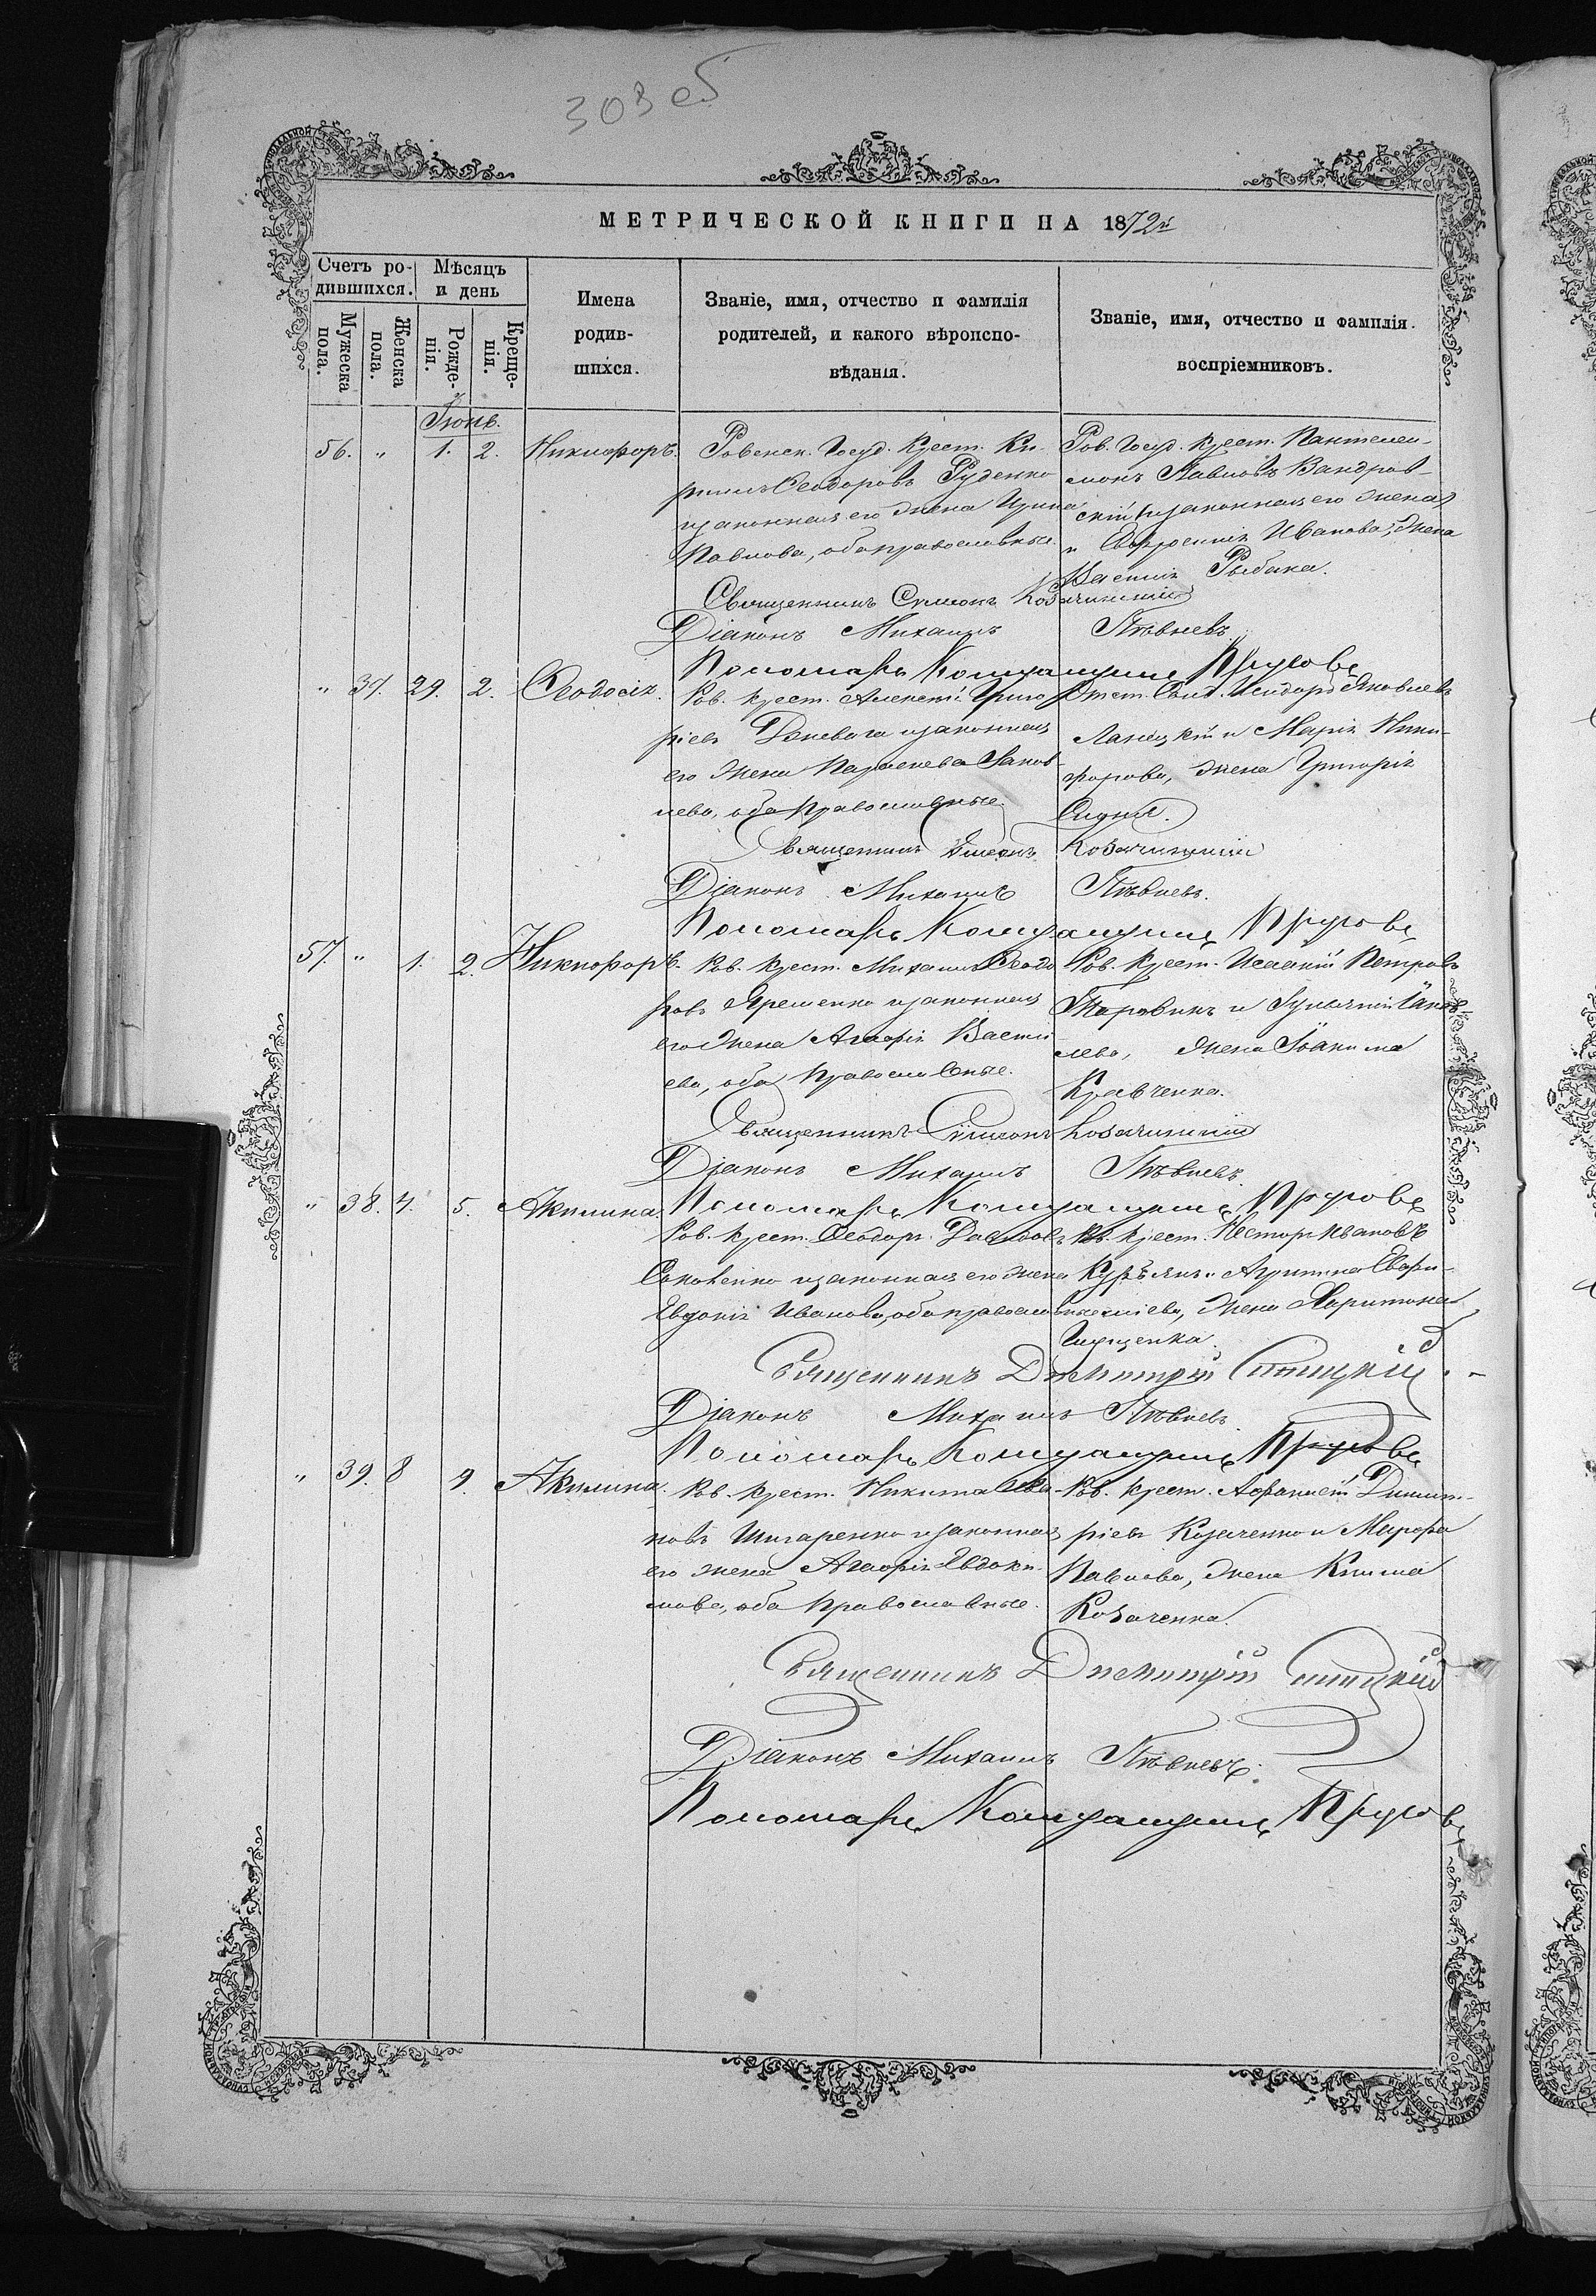 303 об
МЕТРИЧЕСКОЙ КНИГИ НА 1872й
Счетъ родившихся.
Мѣсяцъ и день
Мужеска пола.
Женска пола.
Рожденія.
Крещенія.
Имена
родив-
шихся.
Званіе, имя, отчество и фамилія
родителей, и какого вѣроиспо-
вѣданія.
Званіе, имя, отчество и фамилія
воспріемниковъ.
Іюнь.
56. " 1. 2. Никифоръ.
Ровенск. Госуд. Крест. Ки-
риллъ Ѳеодоровъ Руденко
и законная его жена Ирина
Павлова, оба православные
Ров. Госуд. Крест. Пантелеи-
монъ Павловъ Вандров-
скій (и законная его жена)
и Евфросинія Иванова, жена
Василія Рыбака.
Священникъ Симеонъ Козачинскій
Діаконъ Михаилъ Пѣвневъ.
Пономарь Прусовъ
" 37. 29. 2. Ѳеодосія.
Ров. крест. Алексѣй Григо
ріевъ и законная
его жена Параскева Яков-
лева, оба православные.
Исидоръ Яковлевъ
и Марія Ники-
форова, жена Григорія
Священникъ Симеонъ Козачинскій
Діаконъ Михаилъ Пѣвневъ.
Пономарь Прусовъ
57. " 1. 2. Никифоръ.
Ров. крест. Михаилъ Ѳеодо
ровъ Яременко и законная
его жена Агафія Васил
ева, оба православные.
Ров. крест. Исаакій Петровъ
и Іаков-
лева, жена Іоакима
Кравченка.
Священникъ Симеонъ Козачинскій
Діаконъ Михаилъ Пѣвневъ.
Пономарь Прусовъ
" 38. 4. 5. Акилина.
Ров. крест. Ѳеодоръ Давидовъ
и законная его жена
Евдокія Иванова, оба православные
Ров. крест. Несторъ Ивановъ
и Агрипина
жена Харитона
Священникъ Димитрій
Діаконъ Михаилъ Пѣвневъ.
Пономарь Прусовъ
" 39. 8 9. Акилина.
Ров. крест. Никита
новъ и законная
его жена Агафія Евдоки-
мова, оба православные.
Ров. крест. Афанасій Димит-
ріевъ Козаченко и Марфа
Павлова, жена Климa
Козаченка.
Священникъ Димитрій
Діаконъ Михаилъ Пѣвневъ.
Пономарь Прусовъ